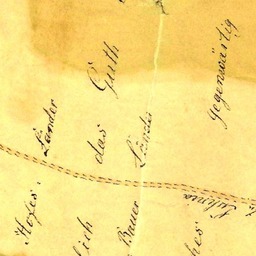 Hofes
Länder
lich
das
Guth
Bauer
Länder
hes
gegenwärtig